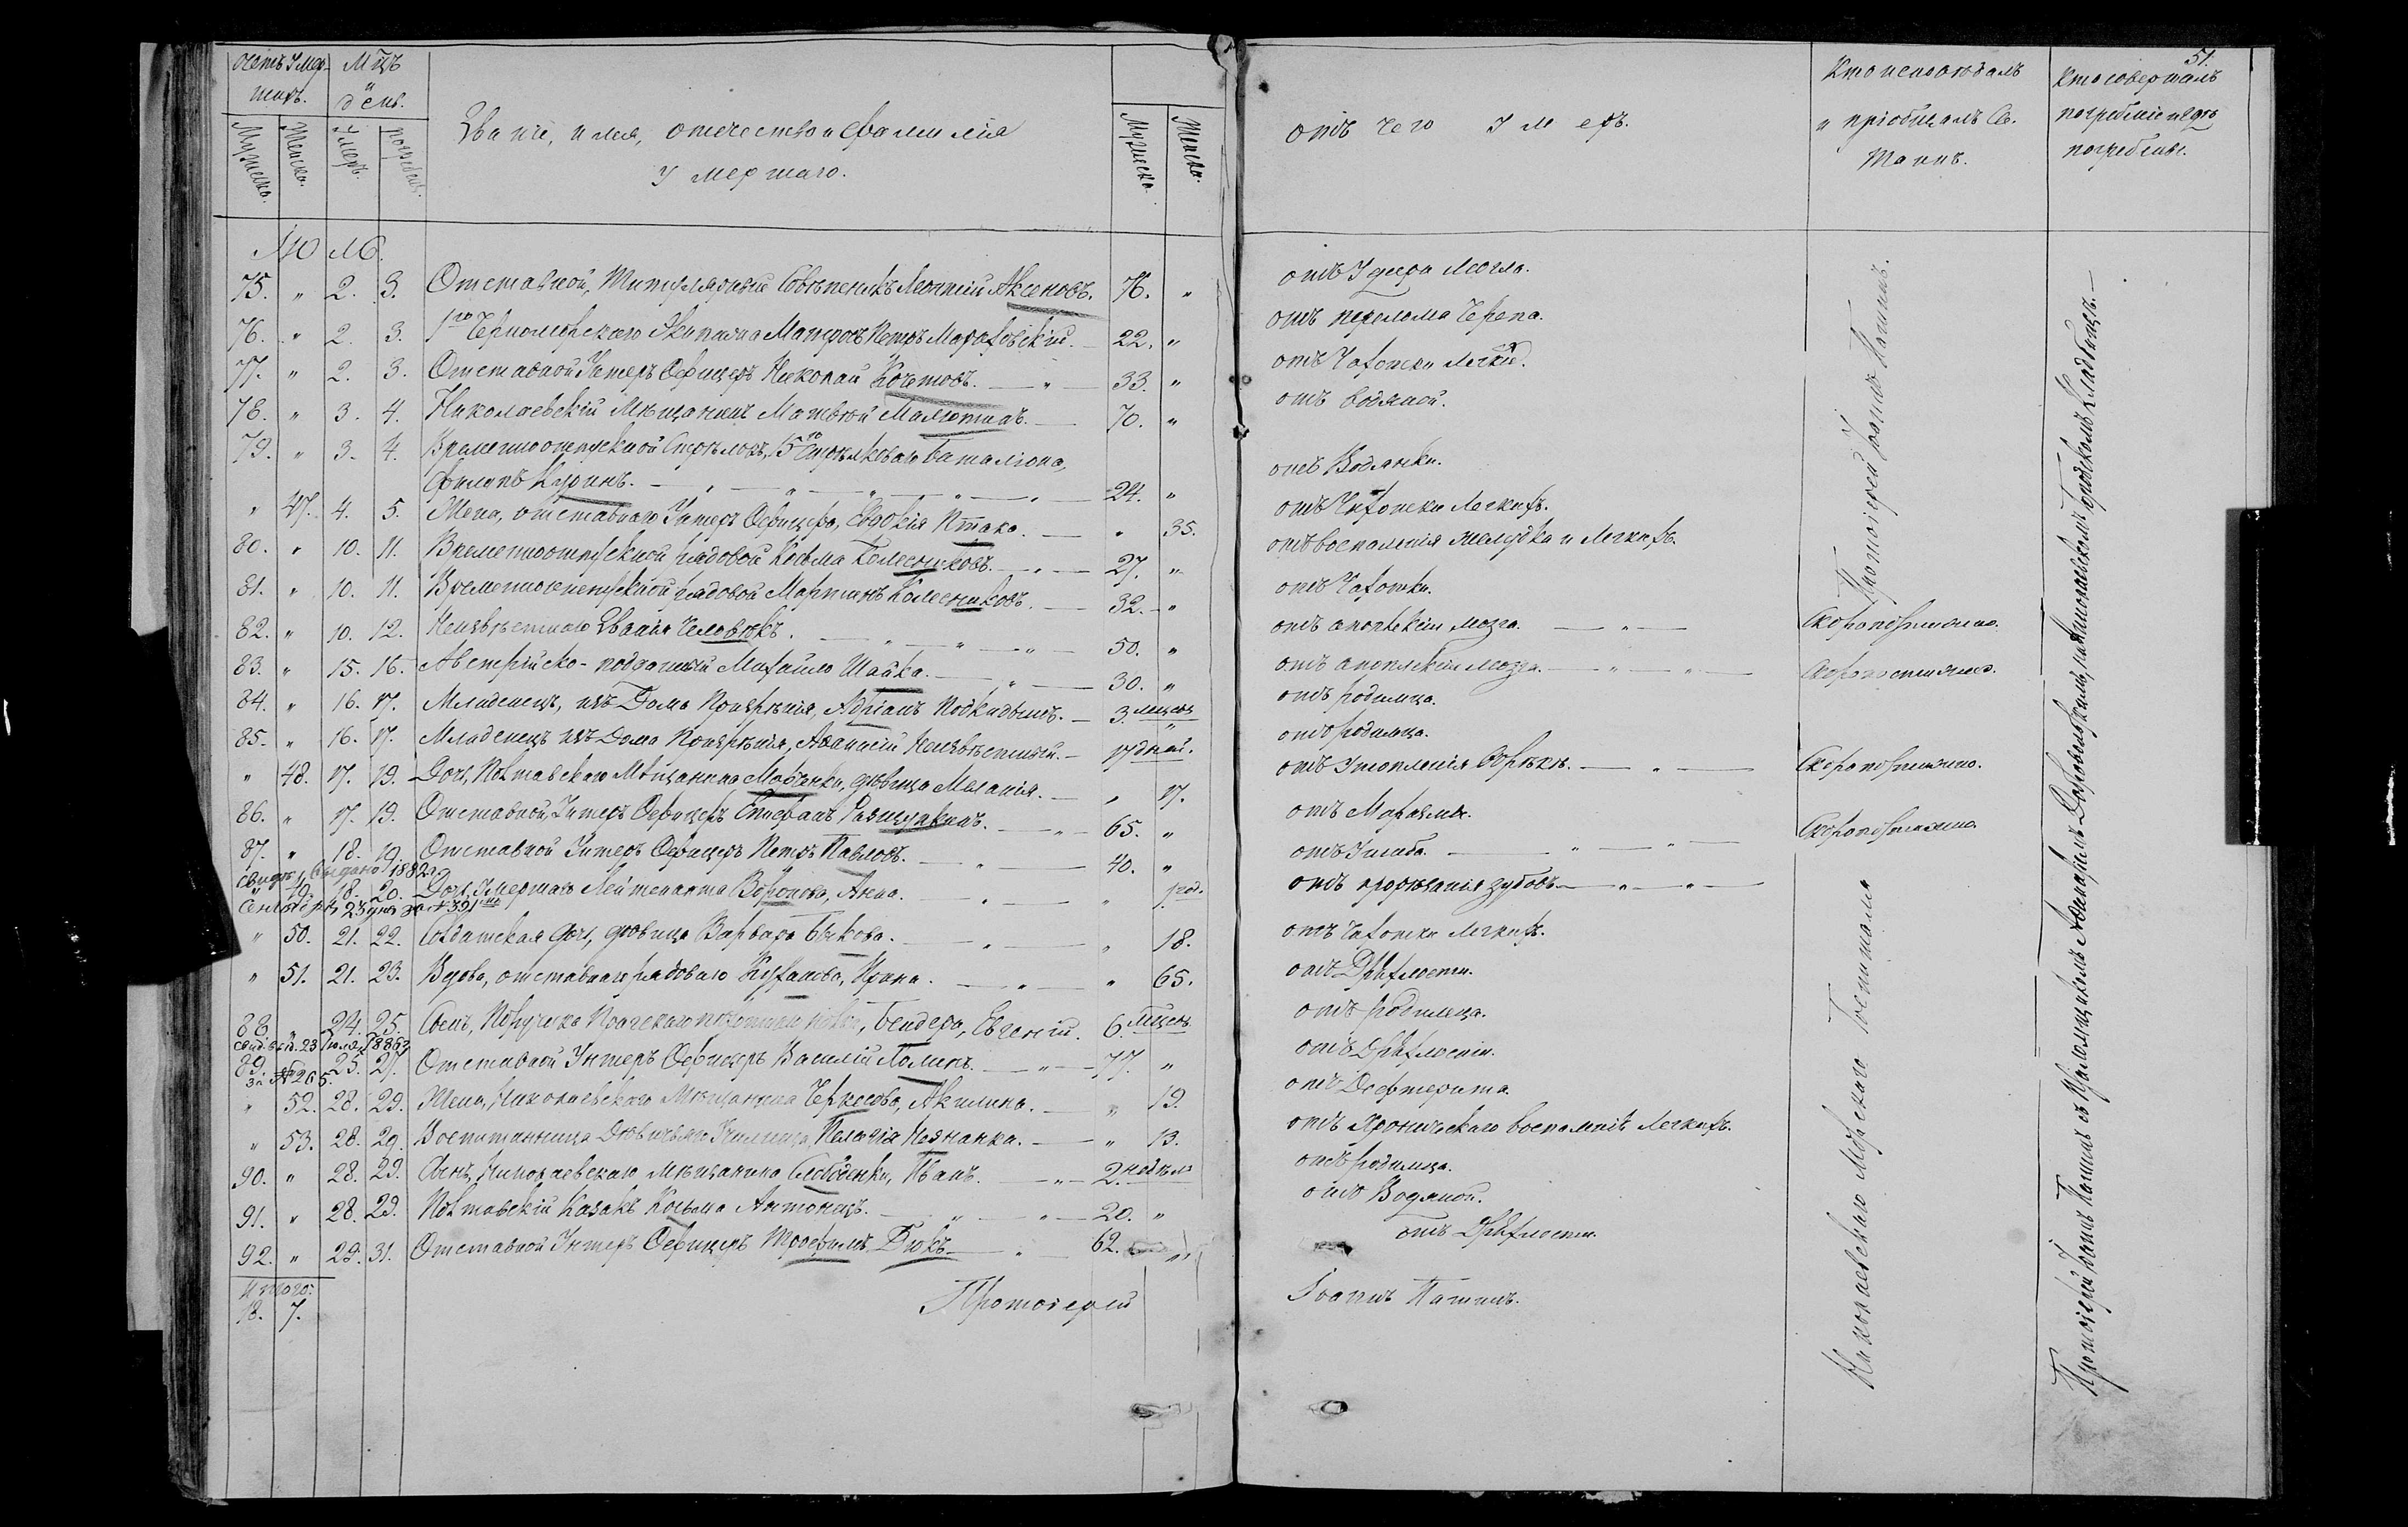 51.
Счетъ Умер-
шихъ.
Мцъ
и
день.
Званіе, имя, отечество и фамилія
Умершаго.
Отъ чего Умеръ.
Кто исповѣдалъ
и пріобщалъ Св.
Таинъ.
Кто совершалъ
погребеніе и гдѣ
погребены.
Мужеска. Женска. Умеръ. погребенъ. Мужеска. Женска.
Іюль.
75. " 2. 3. Отставной, Титулярный Совѣтникъ Леонтій Аксеновъ. 76. " отъ Удара Мозга.
76. " 2. 3. 1го Черноморскаго Экипажа Матросъ Петръ 22. " отъ перелома Черепа.
77. " 2. 3. Отставной Унтеръ Офицеръ Николай Кочетовъ. — " — 33. " отъ Чахотки Легких.
78. " 3. 4. Николаевскій Мѣщанинъ Матвѣй Малютинъ. — 70. " отъ водяной.
79. " 3. 4. Временноотпускной Стрѣлокъ, 15го Стрѣлковаго Баталіона,
Филипъ Куринъ. — " — " — " — " — " — 24. " отъ Водянки.
" 47. 4. 5. Жена, отставнаго Унтеръ Офицера, Евдокія Птаха. — " 35. отъ Чахотки Легкихъ.
80. " 10. 11. Временноотпускной рядовой Косьма Колесниковъ. — " — 27. " отъ воспаленія желудка и Легкихъ.
81. " 10. 11. Временноотпускной рядовой Мартинъ Колесниковъ. — 32. " отъ Чахотки.
82. " 10. 12. Неизвѣстнаго Званія Человѣкъ. — " — " — " — 50. " отъ апоплексіи мозга. — " — Скоропостижно.
83. " 15. 16. Австрійско-подданный Михайло Шайка. — " — 30. " отъ апоплексіи мозга. — " — " — Скоропостижно.
84. " 16. 17. Младенецъ, изъ Дома Призрѣнія, Адріанъ Подкидышъ. — 3. мѣсец " отъ родимца.
85. " 16. 17. Младенецъ изъ Дома Призрѣнія, Афанасій Неизвѣстный. — 17 дней. отъ родимца.
" 48. 17. 19. Дочь, Полтавскаго Мѣщанина дѣвица Меланія. — " 17. отъ Утопленія Ворѣкѣ. — " — Скоропостижно.
86. " 17. 19. Отставной, Унтеръ Офицеръ Стефанъ — " — 65. " отъ Маразма.
87. " 18. 19. Отставной Унтеръ Офицеръ Петръ Павловъ. — " — 40. " отъ Ушиба. — " — " — Скоропостижно.
Свидѣт. выдано 1882 г.
" 49. 18. 20. Дочь, Умершаго Лейтенанта Воронова, Анна. — " — " 1 год. отъ прорѣзанія зубовъ — " — " —
Сентября 23 дня за № 391
" 50. 21. 22. Солдатская дочь, дѣвица Варвара Быкова. — " — " 18. отъ Чахотки Легкихъ.
" 51. 21. 23. Вдова, отставнаго рядоваго Ирина. — " — " 65. отъ Дряхлости.
88. " 24. 25. Сынъ, Поручика Пражскаго пѣхотнаго полка, Бендера, Евгеній. 6. мѣсец отъ родимца.
свид. выд. 23 Іюля 1886 г
89. " 25. 27. Отставной Унтеръ Офицеръ Василій — " — 77. " отъ Дряхлости.
За № 265.
" 52. 28. 29. Жена, Николаевскаго Мѣщанина Черкесова, Акилина. — " 19. отъ Дифтерита.
" 53. 28. 29. Воспитанница Дѣвичьяго Училища, Пелагія Незнанка. — " 13. отъ Хроническаго воспаленія Легкихъ.
90. " 28. 29. Сынъ, Николаевскаго мѣщанина Иванъ. — " — 2. недѣли отъ родимца.
91. " 28. 29. Полтавскій Казакъ Косьма Антонецъ. — " — " — 20. " отъ Водяной.
92. " 29. 31. Отставной Унтеръ Офицеръ Трофимъ Дюкъ — " 62. " отъ Дряхлости.
Итого:
18. 7.
Протоіерей Іоаннъ Патинъ.
Протоіерей Іоаннъ Патинъ.
Николаевскаго Морскаго Госпиталя
Протоіерей Іоаннъ Патинъ съ Псаломщикомъ Адріаномъ на Николаевскомъ Городскомъ Кладбищѣ. —